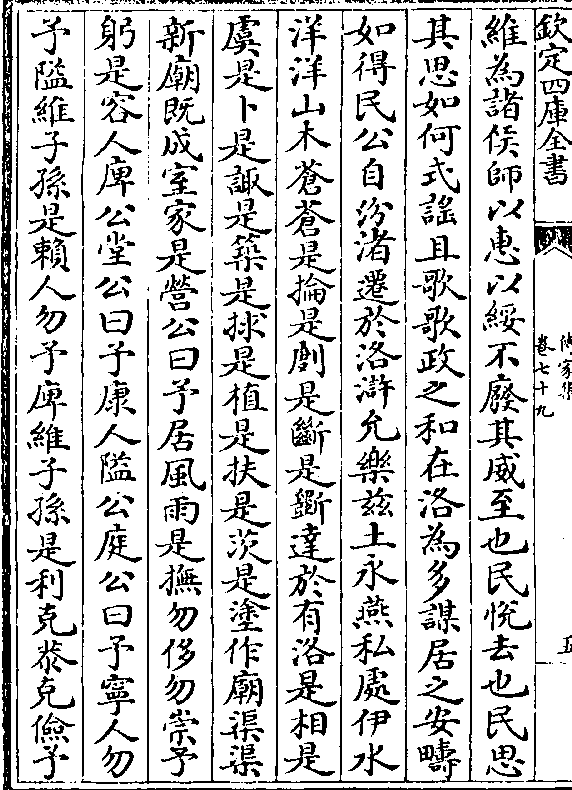 欽定四庫全書
傳家集
卷七十九
維為諧侯師以惠以綏不廢其威至也民悅去也民思
其思如何式謡且歌歌政之和在洛為多謀居之安疇
如得民公自汾渚遷於洛滸允樂兹土永燕私處伊水
洋洋山木蒼蒼是掄是劘是斷是斲達於有洛是相是
虞是卜是諏是築是捄是植是扶是茨是塗作廟渠渠
新廟既成室家是營公曰予居風雨是撫勿侈勿崇予
躬是容人庳公堂公曰予康人隘公庭公曰予寧人勿
予隘維子孫是賴人勿予庳維子孫是利克恭克儉予